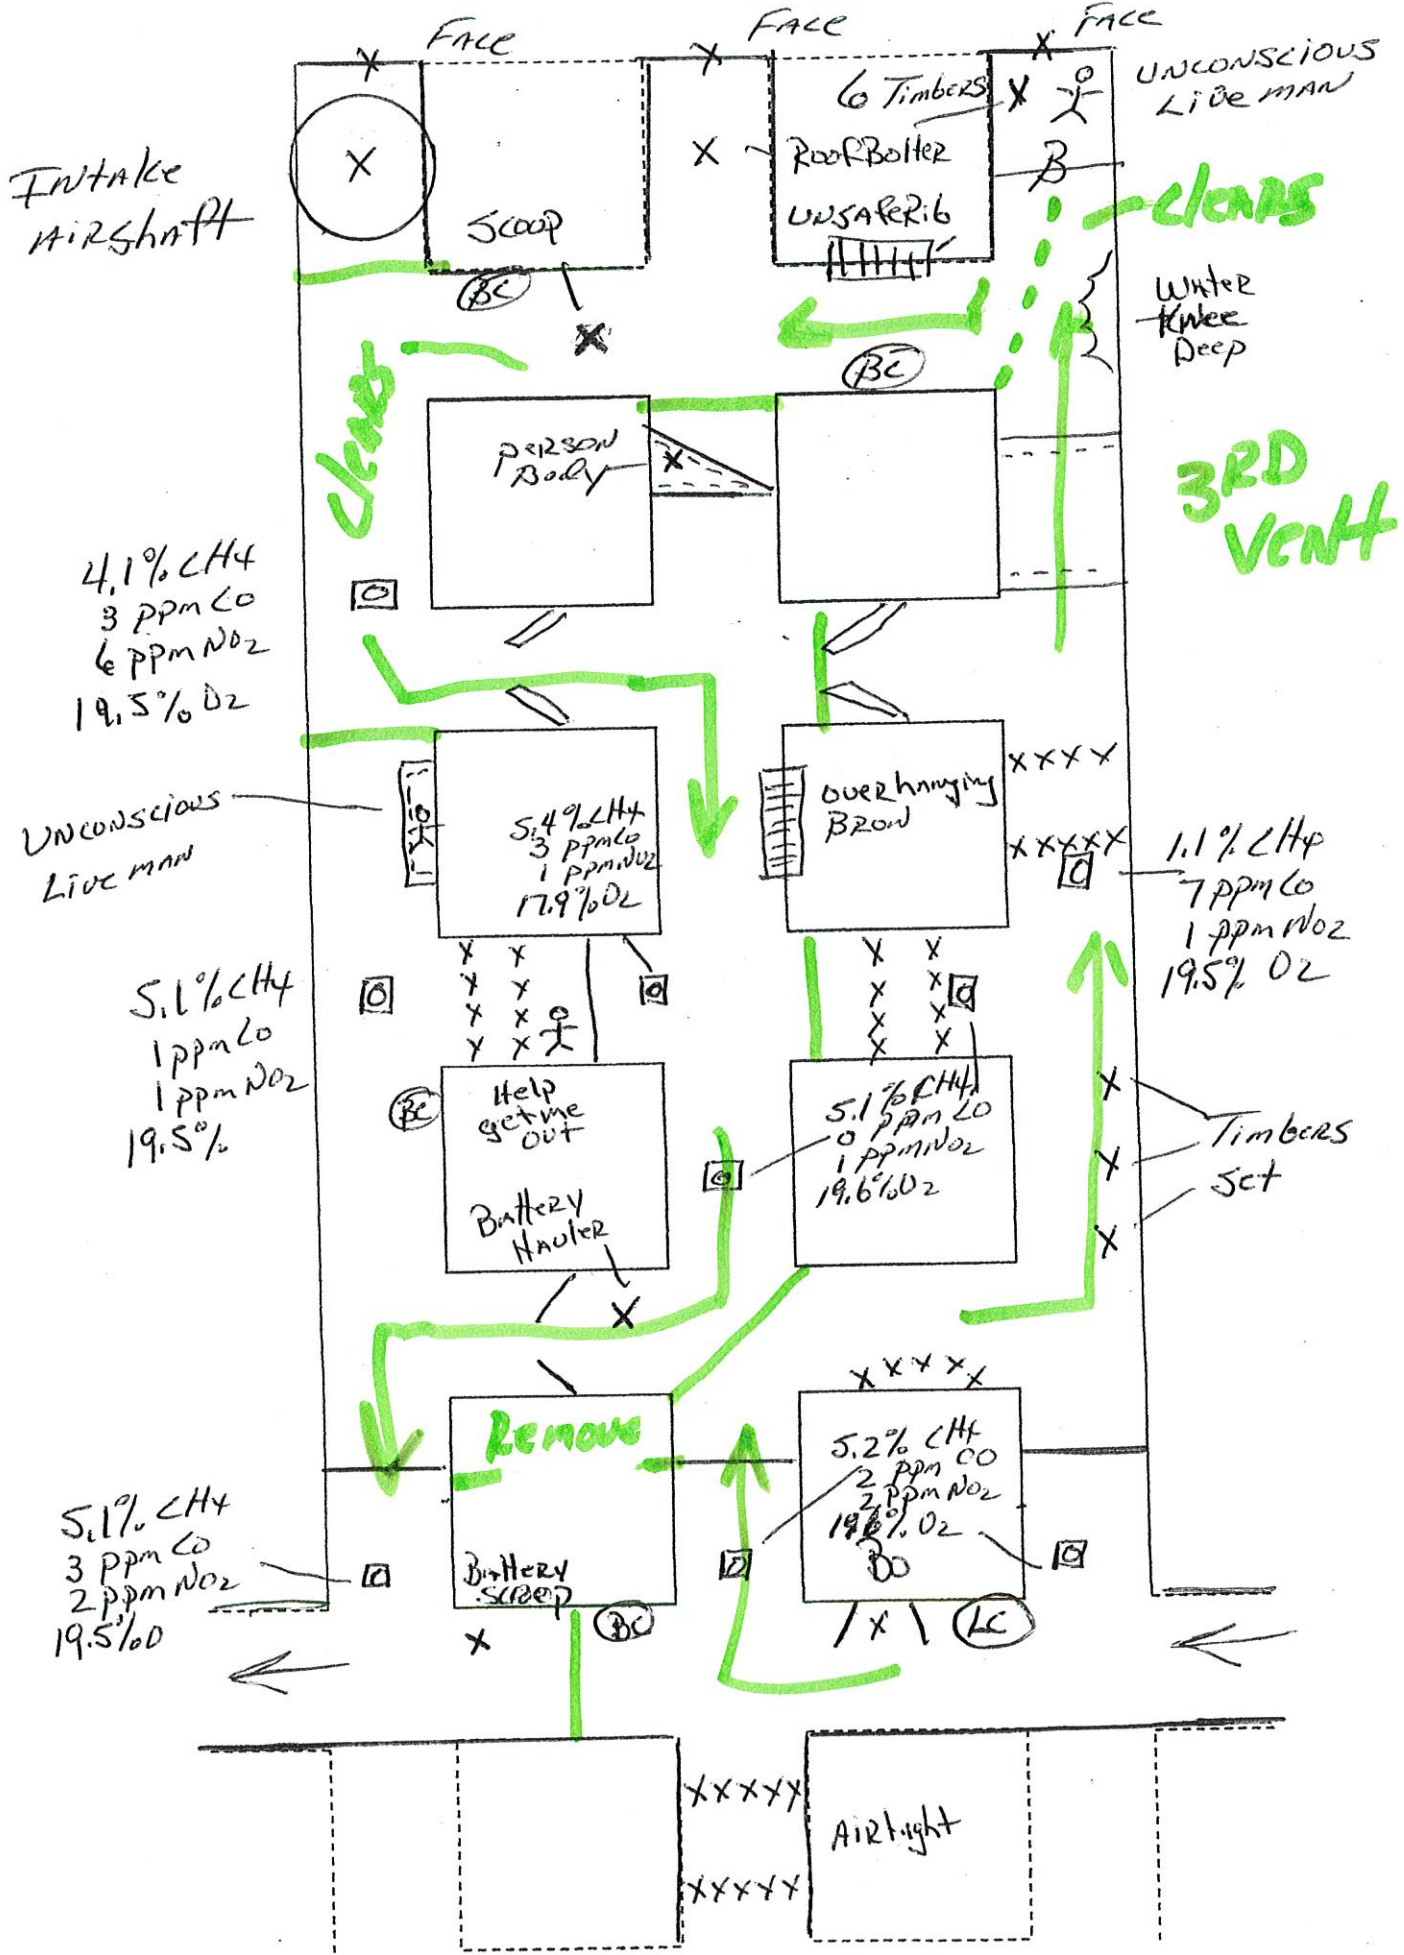 FACE
FACE
FACE
6 Timbers
UNCONSCIOUS
Live MAN
X
X
X
X
X
X
INTAKE
AIRShAft
RoofBolter
B
CleARS
SCOOP
UNSAfeRib
BC
Water
Knee
Deep
X
BC
CleARS
PERSON
Body
X
3RD
VENT
4.1% CH4
3 ppm Co
6 ppm NO2
19.5% O2
UNCONSCIOUS
Live MAN
5.4% CH4
3 ppm Co
1 ppm NO2
17.9% O2
Overhanging
BROW
XXXX
XXXXX
1.1% CH4
7 ppm Co
1 ppm NO2
19.5% O2
5.1% CH4
1 ppm Co
1 ppm NO2
19.5%
X X
X X
X X
X X
X X
X X
X X
X X
BC
Help
get me
out
Battery
Hauler
X
5.1% CH4
0 ppm Co
1 ppm NO2
19.6% O2
X
X
X
Timbers
Set
XXXXX
Remove
5.2% CH4
2 ppm CO
2 ppm NO2
19.6% O2
BO
5.1% CH4
3 ppm Co
2 ppm NO2
19.5% O
Battery
Scoop
BC
X
X
LC
XXXXX
XXXXX
AIRtight